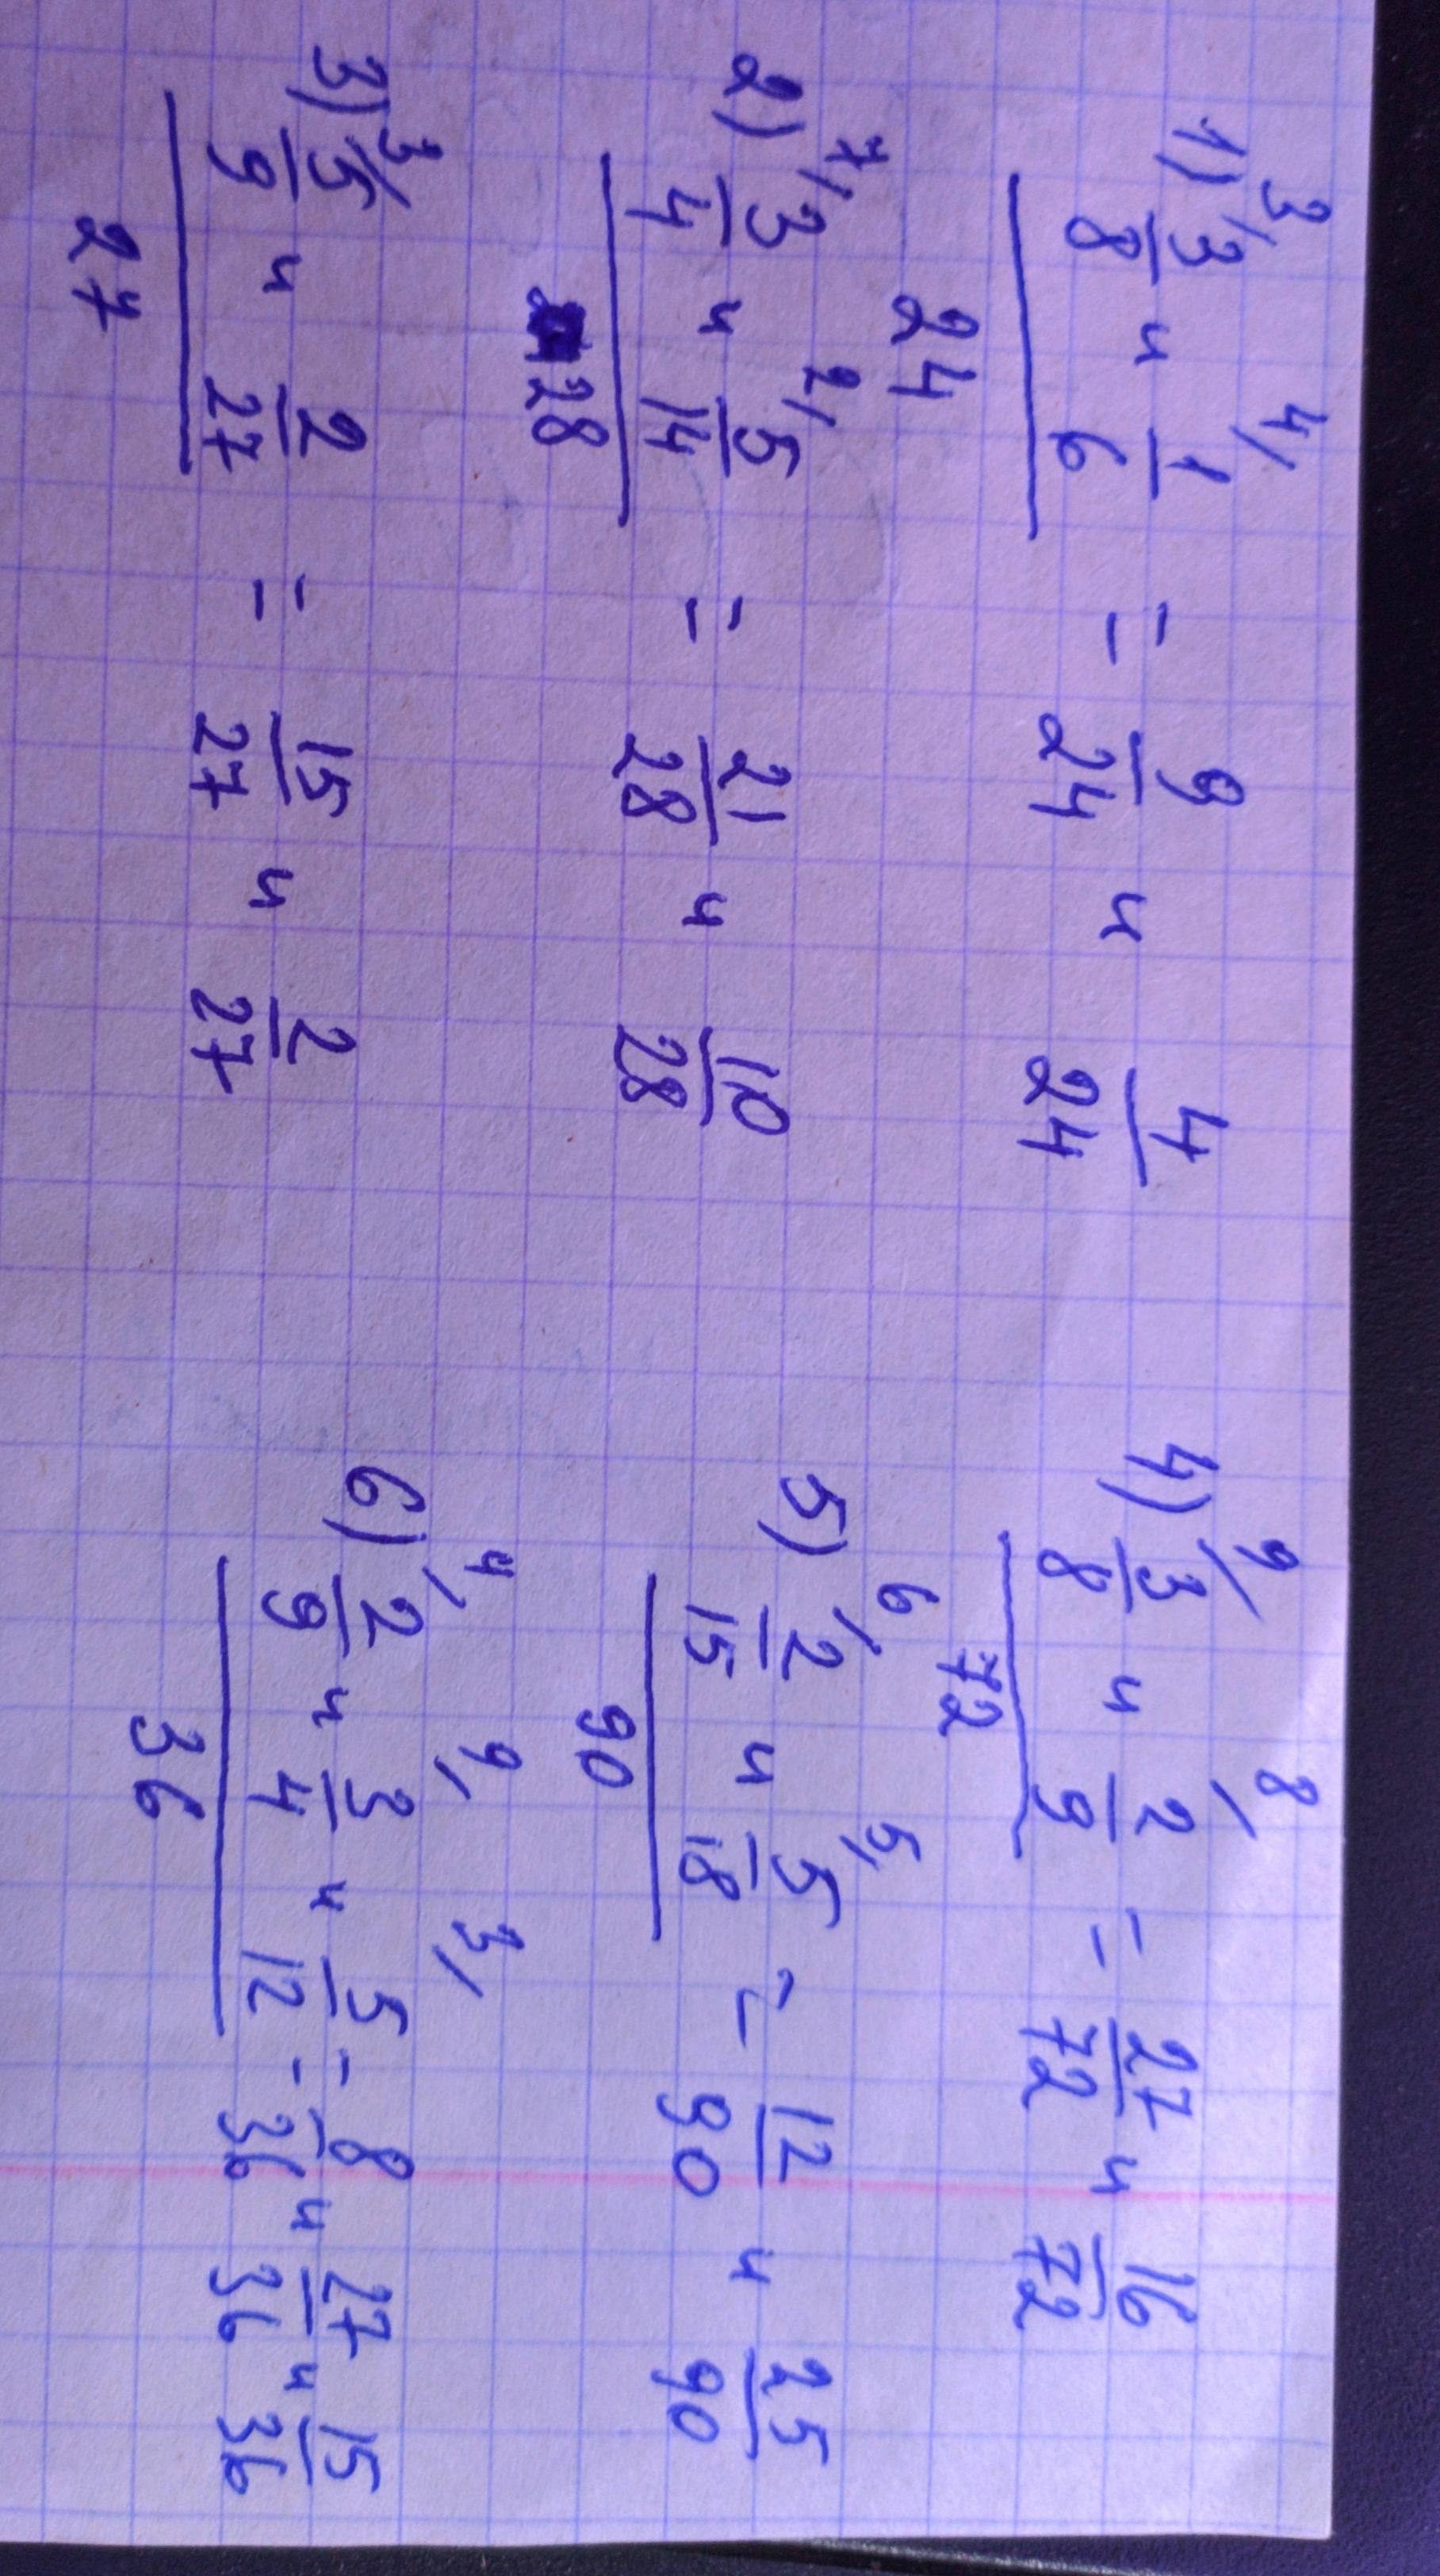 3/ 4/
1) 3/8 и 1/6 = 9/24 и 4/24
24
7/ 2/
2) 3/4 и 5/14 = 21/28 и 10/28
28
3/
3) 5/9 и 2/27 = 15/27 и 2/27
27
9/ 8/
4) 3/8 и 2/9 = 27/72 и 16/72
72
6/ 5/
5) 2/15 и 5/18 = 12/90 и 25/90
90
4/ 9/ 3/
6) 2/9 и 3/4 и 5/12 = 8/36 и 27/36 и 15/36
36